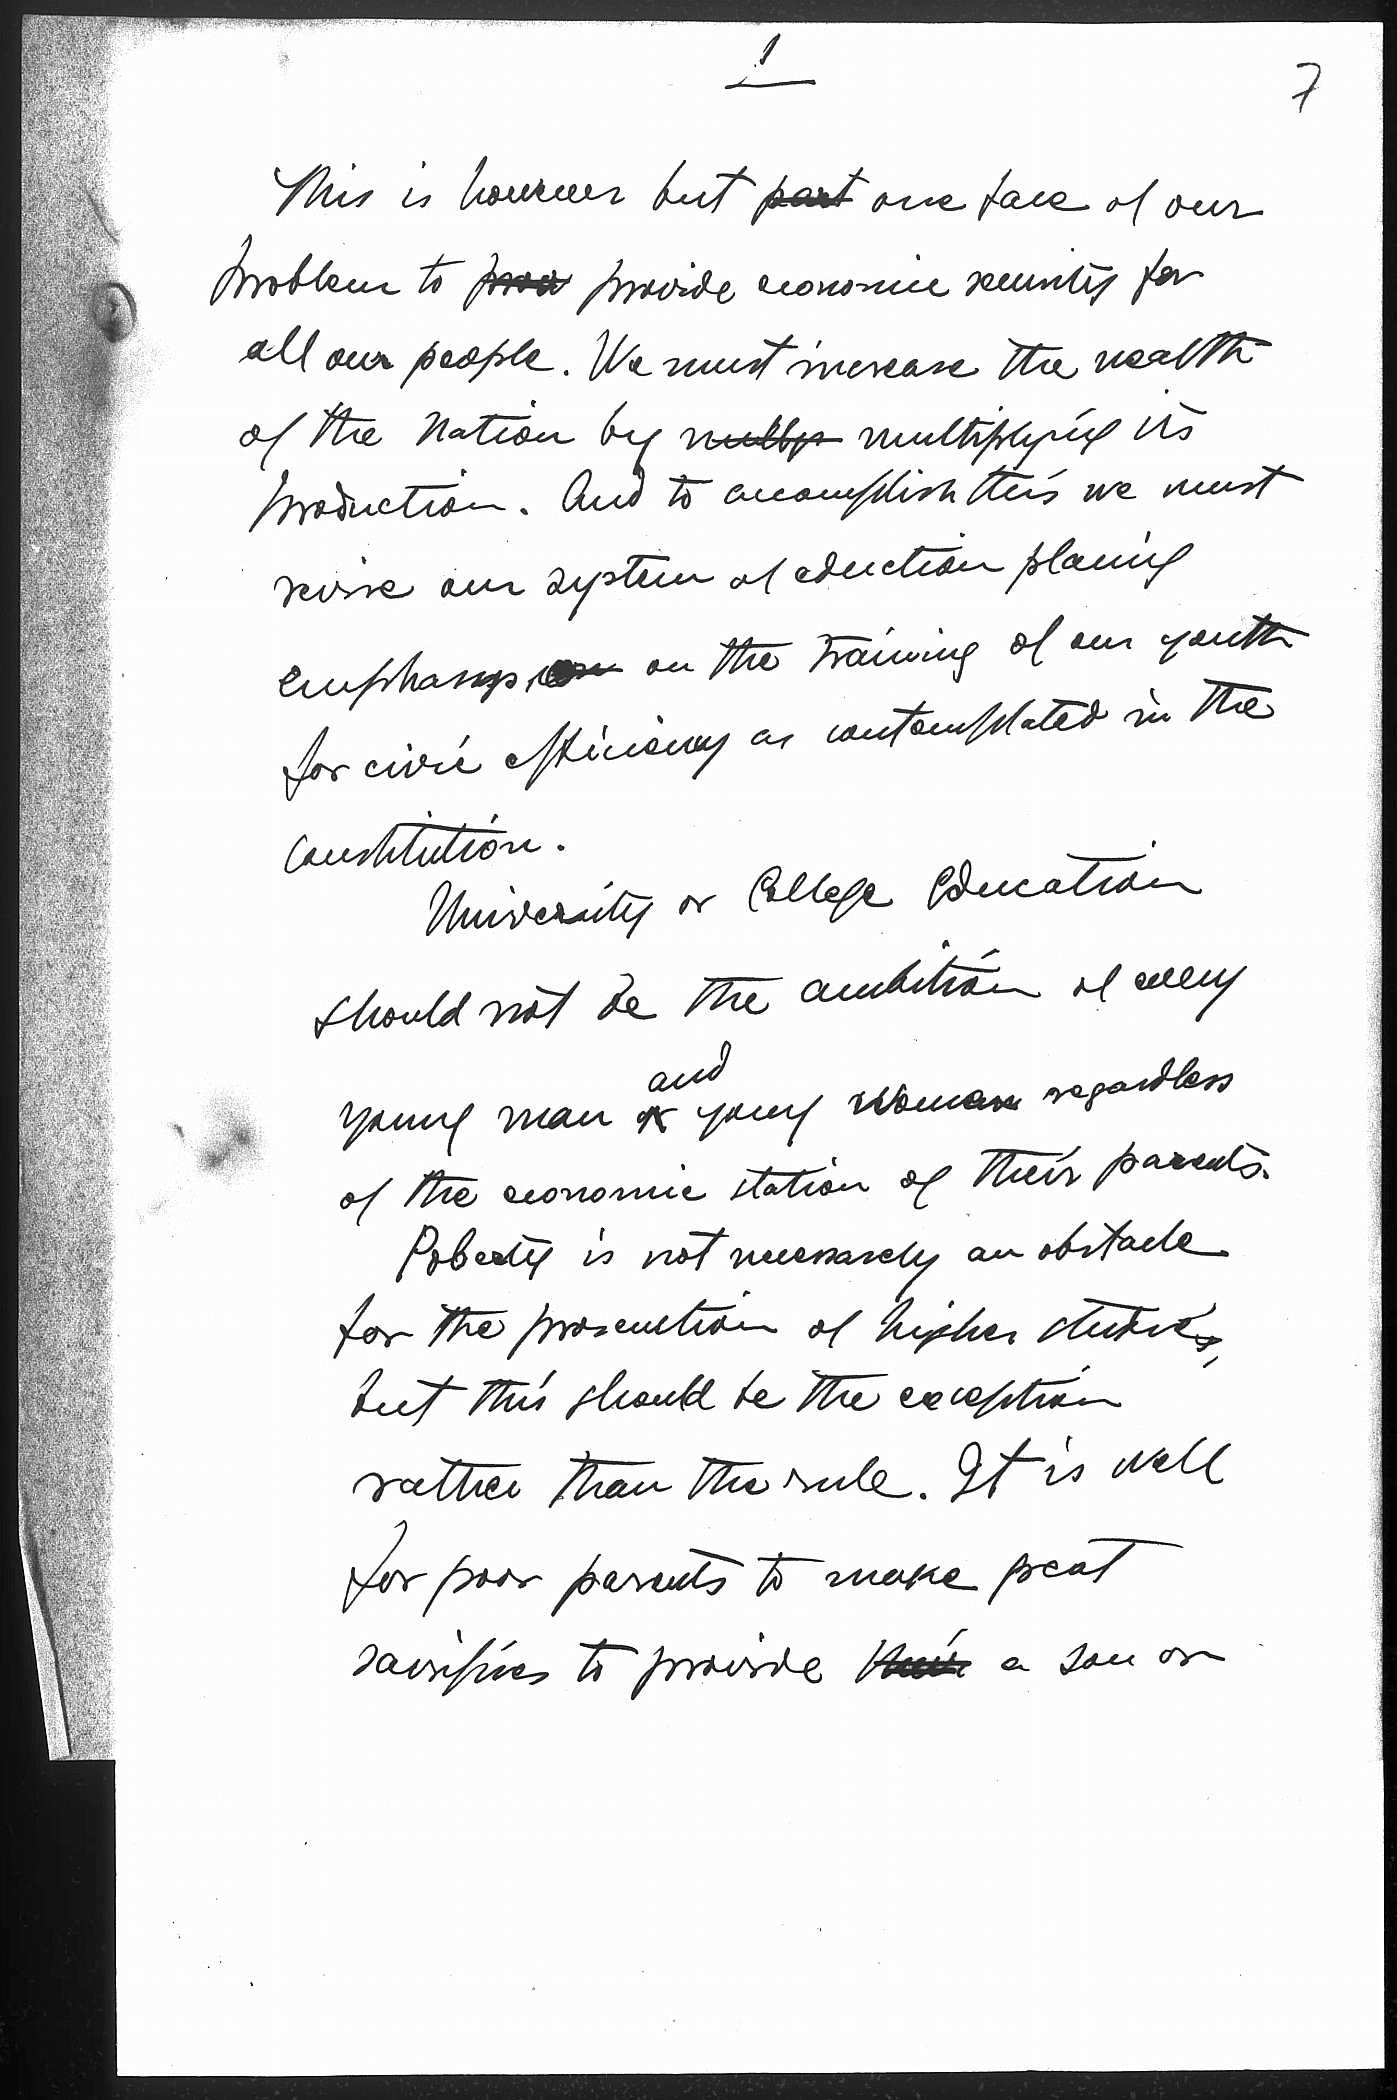 1
7
This is however but part one face of our
problem to prov provide economic security for
all our people. We must increase the wealth
of the Nation by multiplying its
production. And to accomplish this we must
revise our system of eduction placing
emphasys on the training of our youth
for civic efficiency as contemplated in the
constitution.
University or College Education
should not be the ambition of every
and
young man or young woman regardless
of the economic station of their parents.
Poberty is not necessarely an obstacle
for the prosecution of higher studies,
but this should be the exception
rather than the rule. It is well
for poor parents to make great
sacrifices to provide their a son or